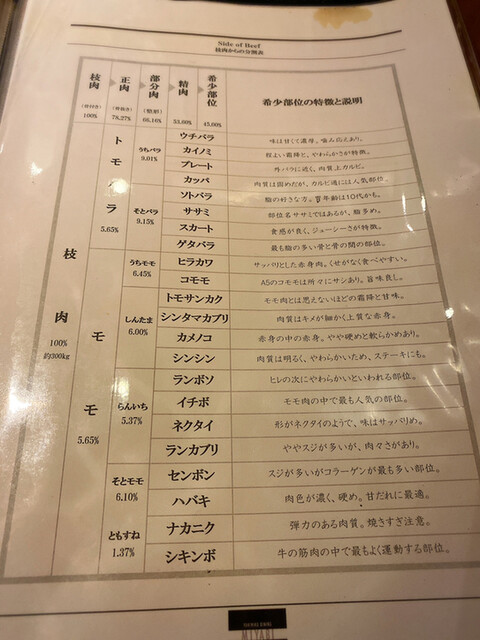 Side of Beef
枝肉からの分割表
枝肉 (骨付き) 100%
正肉 (骨抜き) 78.27%
部分肉 (整形) 66.16%
精肉 53.60%
希少部位 45.00%
希少部位の特徴と説明
枝肉 100% 約300kg
トモバラ 5.65%
うちバラ 9.01%
ウチバラ 味は甘くて濃厚。噛み応えあり。
カイノミ 程よい霜降と、やわらかさが特徴。
プレート 外バラに近く、肉質上カルビ。
カッパ 肉質は固めだが、カルビ通には人気部位。
そとバラ 9.15%
ソトバラ 脂の好きな方。胃年齢は10代かも。
ササミ 部位名ササミではあるが、脂多め。
スカート 食感が良く、ジューシーさが特徴。
ゲタバラ 最も脂の多い骨と骨の間の部位。
モモ 5.65%
うちモモ 6.45%
ヒラカワ サッパリとした赤身肉。くせがなく食べやすい。
コモモ A5のコモモは所々にサシあり。旨味良し。
しんたま 6.00%
トモサンカク モモ肉とは思えないほどの霜降と甘味。
シンタマカブリ 肉質はキメが細かく上質な赤身。
カメノコ 赤身の中の赤身。やや硬めと軟らかめあり。
シンシン 肉質は明るく、やわらかいため、ステーキにも。
らんいち 5.37%
ランボソ ヒレの次にやわらかといわれる部位。
イチボ モモ肉の中で最も人気の部位。
ネクタイ 形がネクタイのようで、味はサッパリめ。
ランカブリ ややスジが多いが、肉々さがあり。
そとモモ 6.10%
センボン スジが多いがコラーゲンが最も多い部位。
ハバキ 肉色が濃く、硬め。甘だれに最適。
ともすね 1.37%
ナカニク 弾力のある肉質。焼きすぎ注意。
シキンボ 牛の筋肉の中で最もよく運動する部位。
MIYABI